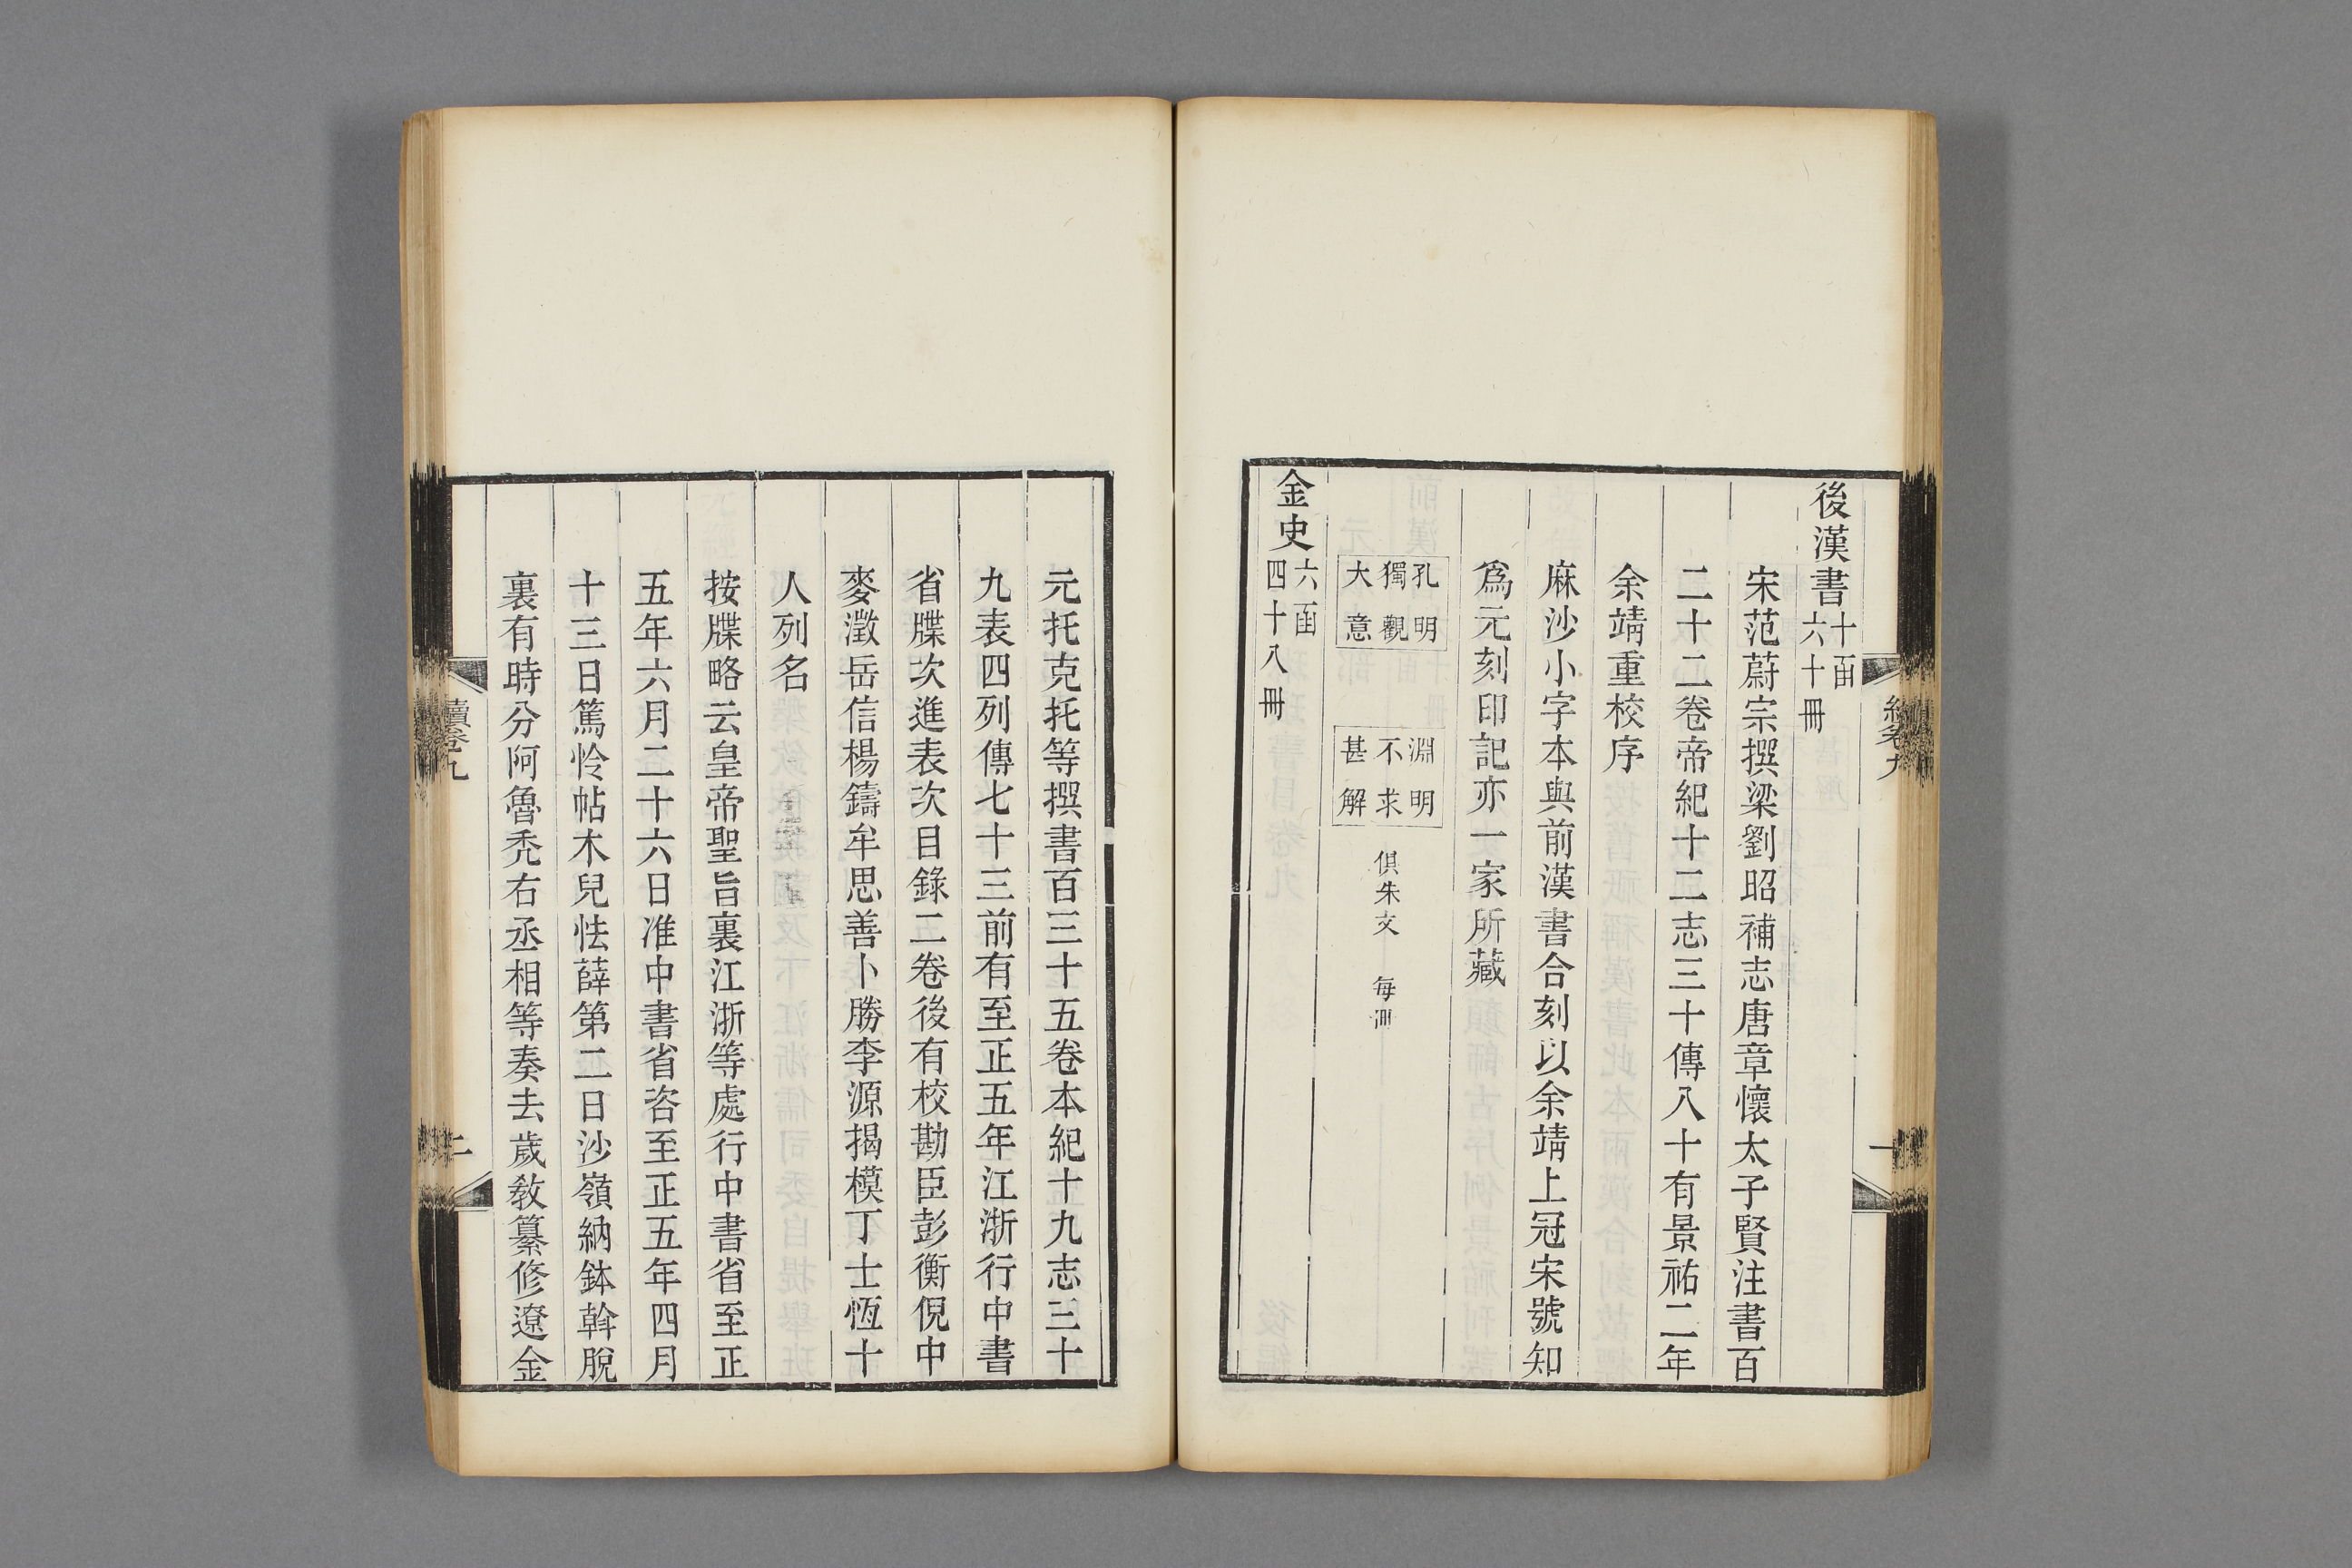 後漢書十函
六十冊
宋范蔚宗撰梁劉昭補志唐章懷太子賢注書百
二十二卷帝紀十二志三十傳八十有景祐二年
余靖重校序
麻沙小字本與前漢書合刻以余靖上冠宋號知
爲元刻印記亦一家所藏
孔明
獨觀
大意
淵明
不求
甚解
俱朱文 每冊
金史六函
四十八冊
元托克托等撰書百三十五卷本紀十九志三十
九表四列傳七十三前有至正五年江浙行中書
省牒次進表次目錄二卷後有校勘臣彭衡倪中
麥澂岳信楊鑄牟思善卜勝李源揭模丁士恆十
人列名
按牒略云皇帝聖旨裏江浙等處行中書省至正
五年六月二十六日准中書省咨至正五年四月
十三日篤怜帖木兒怯薛第二日沙嶺納鉢斡脫
裏有時分阿魯禿右丞相等奏去歲敎纂修遼金
續卷九
二